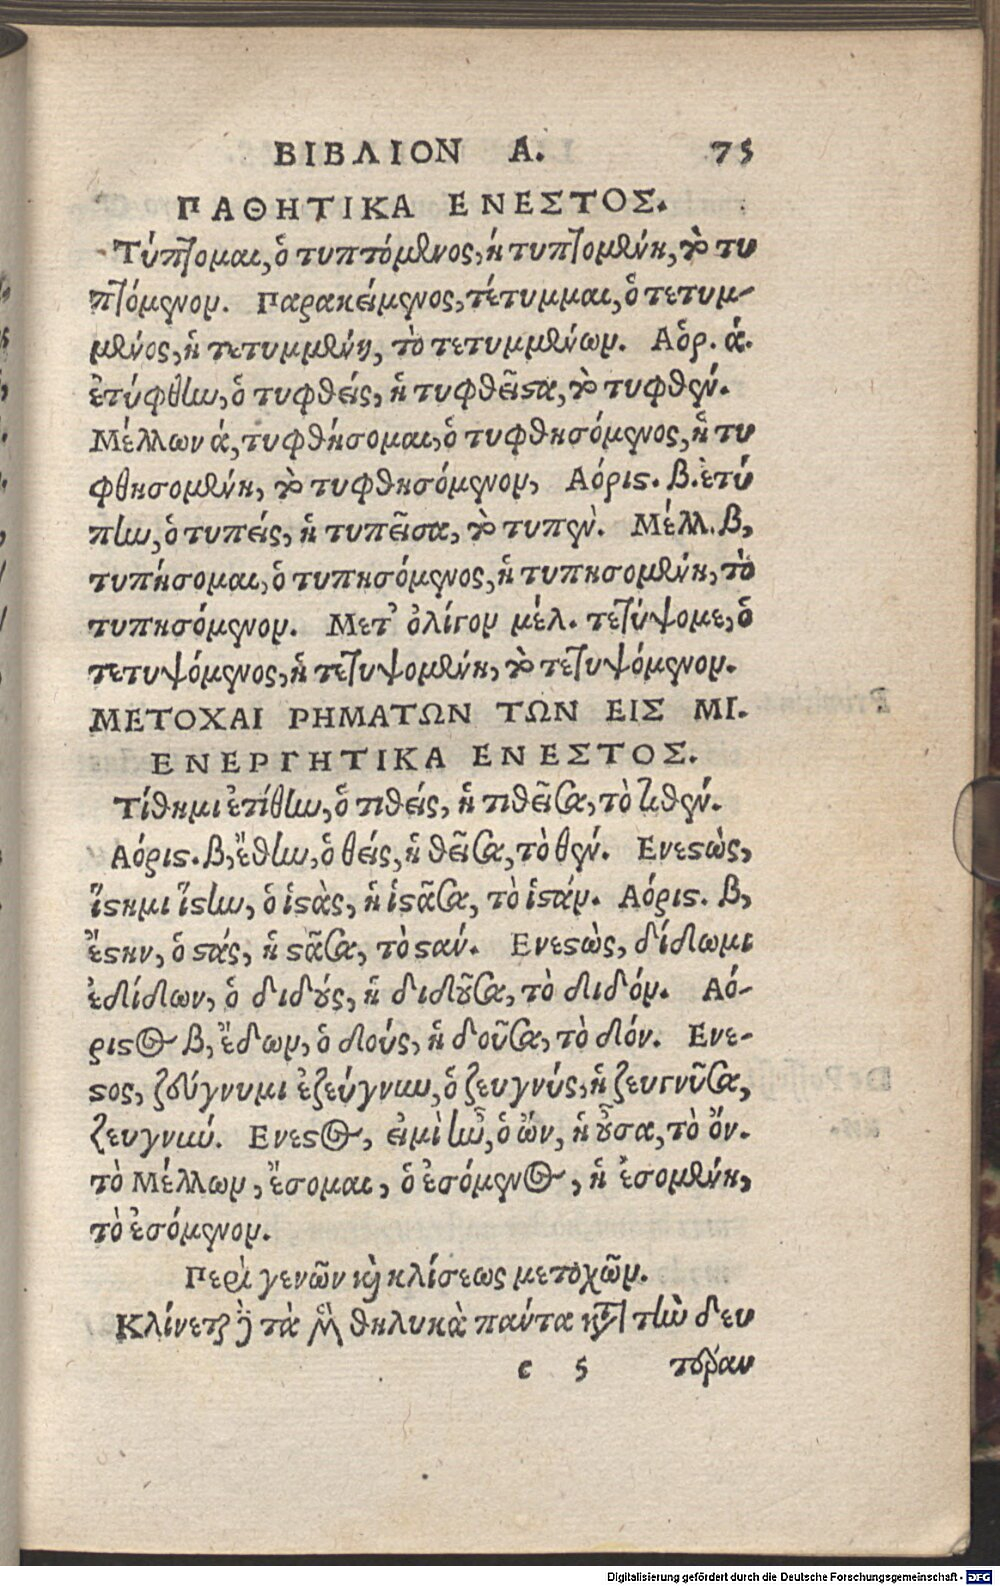 ΒΙΒΛΙΟΝ Α. 75
ΠΑΘΗΤΙΚΑ ΕΝΕΣΤΟΣ.
Τύπτομαι, ὁ τυπτόμενος, ἡ τυπτομένη, τὸ τυ
πτόμενον. Παρακείμενος, τέτυμμαι, ὁ τετυμ-
μένος, ἡ τετυμμένη, τὸ τετυμμένων. Αὁρ. ά.
ἐτύφθην, ὁ τυφθείς, ἡ τυφθεῖσα, τὸ τυφθέν.
Μέλλων ά, τυφθήσομαι, ὁ τυφθησόμενος, ἡ τυ
φθησομένη, τὸ τυφθησόμενον, Αόρις. β. ἐτύ
πην, ὁ τυπείς, ἡ τυπεῖσα, τὸ τυπὲν. Μέλλ. β,
τυπήσομαι, ὁ τυπησόμενος, ἡ τυπησομένη, τὸ
τυπησόμενον. Μετ' ὀλίγον μέλ. τετύψομε, ὁ
τετυψόμενος, ἡ τετυψομένη, τὸ τετυψόμενον.
ΜΕΤΟΧΑΙ ΡΗΜΑΤΩΝ ΤΩΝ ΕΙΣ ΜΙ.
ΕΝΕΡΓΗΤΙΚΑ ΕΝΕΣΤΟΣ.
Τίθημι ἐτίθην, ὁ τιθείς, ἡ τιθεῖσα, τὸ τιθέν.
Αόρις. β, ἔθην, ὁ θείς, ἡ θεῖσα, τὸ θέν. Ενεστὼς,
ἵστημι ἵστην, ὁ ἱστὰς, ἡ ἱστᾶσα, τὸ ἱστάν. Αόρις. β,
ἔστην, ὁ στάς, ἡ στᾶσα, τὸ στάν. Ενεστὼς, δίδωμι
ἐδίδων, ὁ διδούς, ἡ διδοῦσα, τὸ διδόν. Αό-
ριστος β, ἔδων, ὁ δούς, ἡ δοῦσα, τὸ δόν. Ενε-
στος, ζεύγνυμι ἐζεύγνυν, ὁ ζευγνύς, ἡ ζευγνῦσα,
ζευγνύν. Ενεστος, εἰμὶ ἦν, ὁ ὤν, ἡ οὖσα, τὸ ὄν.
τὸ Μέλλων, ἔσομαι, ὁ ἐσόμενος, ἡ ἐσομένη,
τὸ ἐσόμενον.
Περὶ γενῶν καὶ κλίσεως μετοχῶν.
Κλίνεται δὲ τὰ μὲν θηλυκὰ πάντα κατὰ τὴν δευ
c 5 τέραν
Digitalisierung gefördert durch die Deutsche Forschungsgemeinschaft - DFG